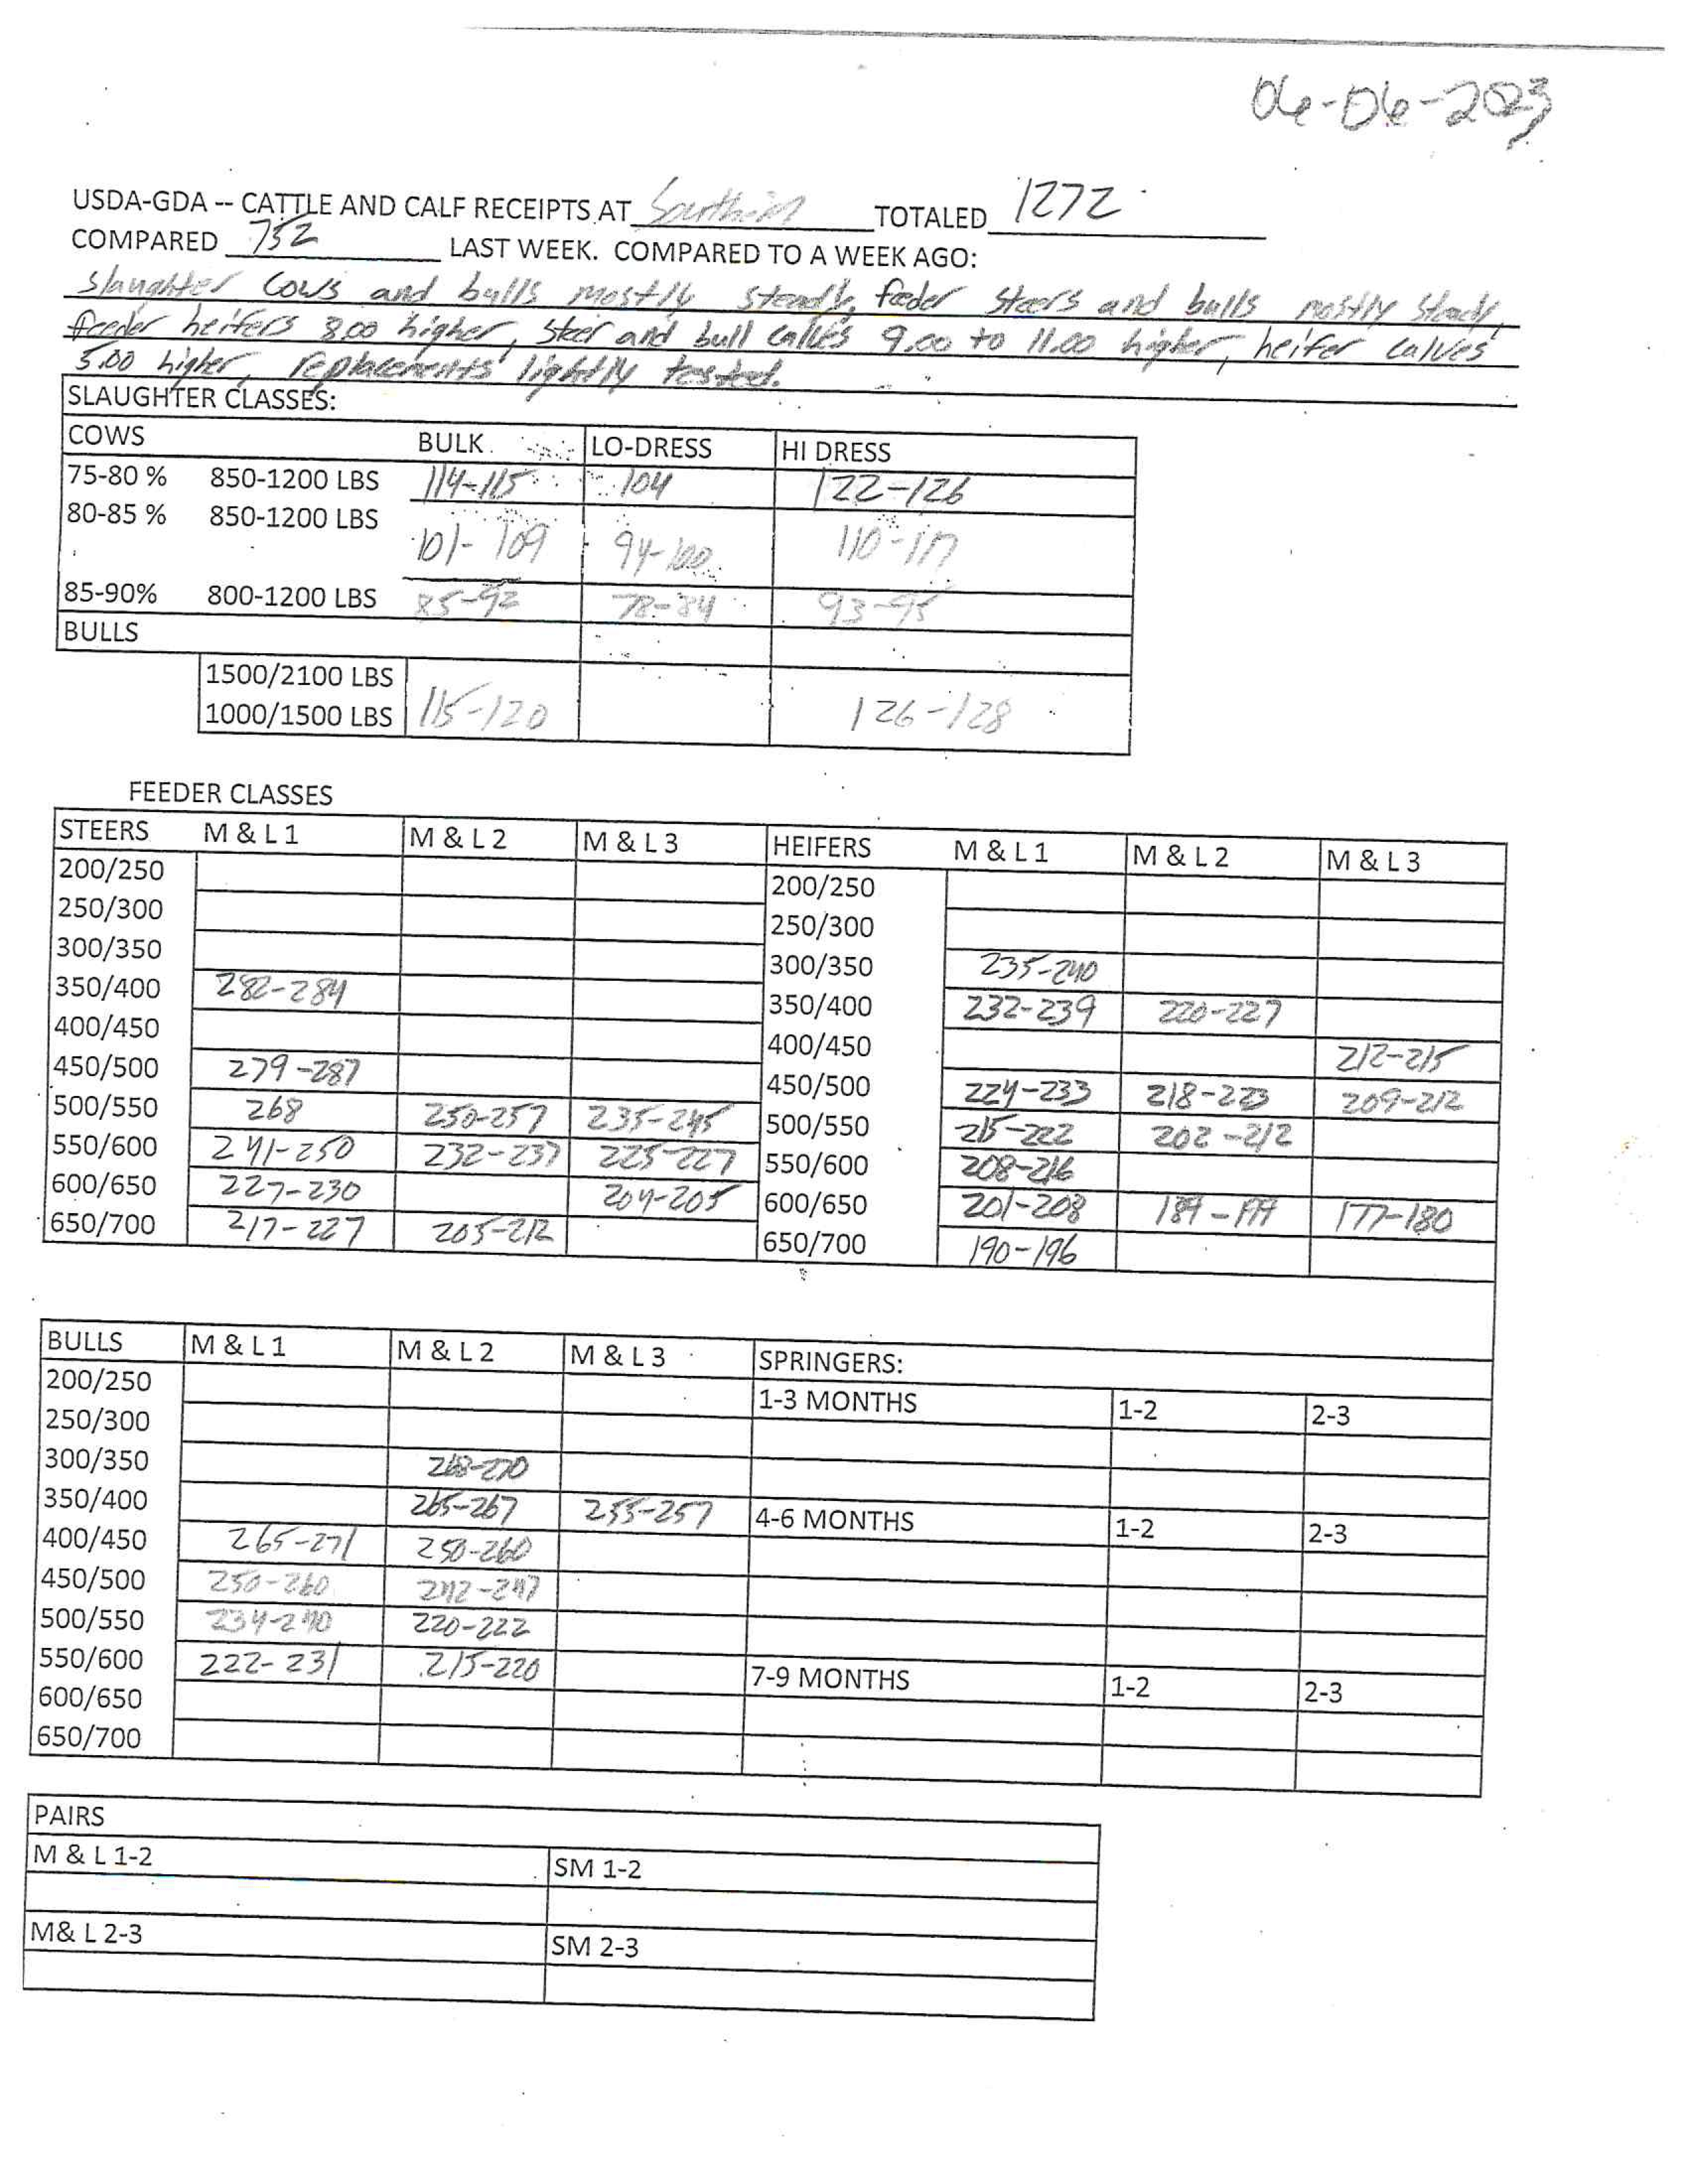 06-06-2023
USDA-GDA -- CATTLE AND CALF RECEIPTS AT Southern TOTALED 1272
COMPARED 752 LAST WEEK. COMPARED TO A WEEK AGO:
slaughter cows and bulls mostly steady, feeder steers and bulls mostly steady,
feeder heifers 3.00 higher, steer and bull calves 9.00 to 11.00 higher, heifer calves
5.00 higher, replacements lightly tested.
SLAUGHTER CLASSES:
COWS BULK LO-DRESS HI DRESS
75-80 % 850-1200 LBS 114-115 104 122-126
80-85 % 850-1200 LBS 101-109 94-100 110-117
85-90% 800-1200 LBS 85-92 78-84 93-95
BULLS
1500/2100 LBS
1000/1500 LBS 115-120 126-128
FEEDER CLASSES
STEERS M & L 1 M & L 2 M & L 3 HEIFERS M & L 1 M & L 2 M & L 3
200/250 200/250
250/300 250/300
300/350 300/350 235-240
350/400 282-284 350/400 232-239 220-227
400/450 400/450 212-215
450/500 279-287 450/500 224-233 218-223 209-212
500/550 268 250-257 235-245 500/550 215-222 202-212
550/600 241-250 232-237 225-227 550/600 208-216
600/650 227-230 204-205 600/650 201-208 177-180
650/700 217-227 205-212 650/700 190-196
BULLS M & L 1 M & L 2 M & L 3 SPRINGERS:
200/250 1-3 MONTHS 1-2 2-3
250/300
300/350 268-270
350/400 265-267 255-257 4-6 MONTHS 1-2 2-3
400/450 265-271 250-260
450/500 250-260 242-247
500/550 234-240 220-222
550/600 222-231 215-220 7-9 MONTHS 1-2 2-3
600/650
650/700
PAIRS
M & L 1-2 SM 1-2
M& L 2-3 SM 2-3